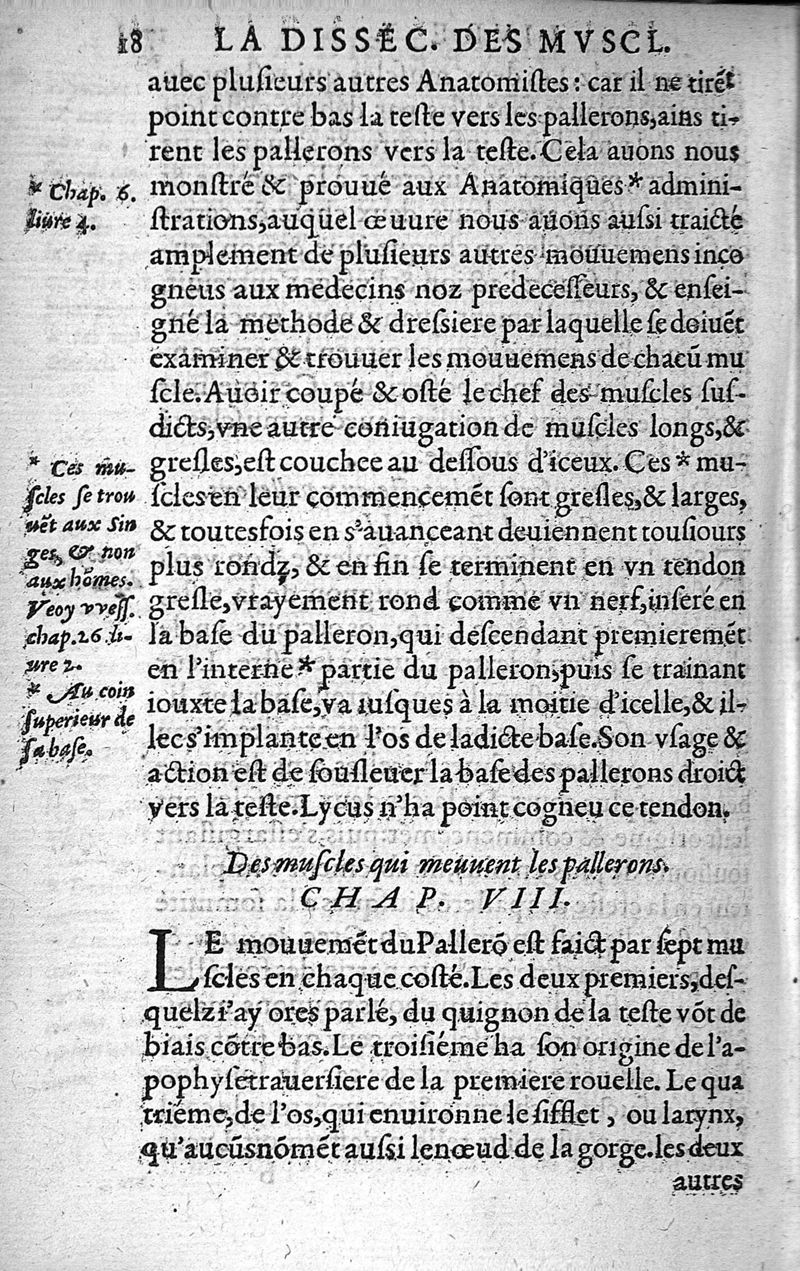 18 LA DISSEC. DES MVSCL.
auec plusieurs autres Anatomistes: car il ne tirēt
point contre bas la teste vers les pallerons, ains ti-
rent les pallerons vers la teste. Cela auons nous
monstré & prouué aux Anatomiques * admini-
strations, auquel œuure nous auons aussi traicté
amplement de plusieurs autres mouuemens inco
gneus aux medecins noz predecesseurs, & ensei-
gné la methode & dressiere par laquelle se doiuēt
examiner & trouuer les mouuemens de chacū mu
scle. Auoir coupé & osté le chef des muscles sus-
dicts, vne autre coniugation de muscles longs, &
gresles, est couchee au dessous d'iceux. Ces * mu-
scles en leur commencemēt sont gresles, & larges,
& toutesfois en s'auanceant deuiennent tousiours
plus rondz, & en fin se terminent en vn tendon
gresle, vrayement rond comme vn nerf, inseré en
la base du palleron, qui descendant premieremēt
en l'interne * partie du palleron, puis se trainant
iouxte la base, va iusques à la moitie d'icelle, & il-
lec s'implante en l'os de ladicte base. Son vsage &
action est de sousleuer la base des pallerons droict
vers la teste. Lycus n'ha point cogneu ce tendon.
* Chap. 6.
liure 4.
* Ces mu-
scles se trou
uēt aux Sin
ges, & non
aux hōmes.
Veoy vvess.
chap. 26. li-
ure 2.
* Au coin
superieur de
sa base.
Des muscles qui meuuent les pallerons.
CHAP. VIII.
LE mouuemēt du Pallerō est faict par sept mu
scles en chaque costé. Les deux premiers, des-
quelz i'ay ores parlé, du quignon de la teste vōt de
biais cōtre bas. Le troisiéme ha son origine de l'a-
pophyse trauersiere de la premiere rouelle. Le qua
triéme, de l'os, qui enuironne le sifflet, ou larynx,
qu'aucūs nōmēt aussi le nœud de la gorge. les deux
autres